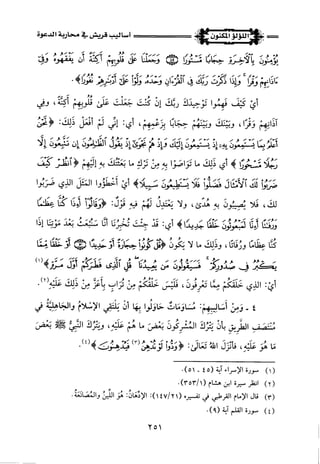 اللؤلؤ المكنون
أساليب قريش في محاربة الدعوة
يُؤْمِنُونَ بِالْآخِرَةِ حِجَابًا مَسْتُورًا (٤٥) وَجَعَلْنَا عَلَى قُلُوبِهِمْ أَكِنَّةً أَنْ يَفْقَهُوهُ وَفِي
آذَانِهِمْ وَقْرًا وَإِذَا ذَكَرْتَ رَبَّكَ فِي الْقُرْآنِ وَحْدَهُ وَلَّوْا عَلَى أَدْبَارِهِمْ نُفُورًا﴾.
أَيْ كَيْفَ فَهِمُوا تَوْحِيدَكَ رَبَّكَ إِنْ كُنْتَ جَعَلْتَ عَلَى قُلُوبِهِمْ أَكِنَّةً، وَفِي
آذَانِهِمْ وَقْرًا، وَبَيْنَكَ وَبَيْنَهُمْ حِجَابًا بِزَعْمِهِمْ، أي: إِنِّي لَمْ أَفْعَلْ ذَلِكَ: ﴿نَحْنُ
أَعْلَمُ بِمَا يَسْتَمِعُونَ بِهِ إِذْ يَسْتَمِعُونَ إِلَيْكَ وَإِذْ هُمْ نَجْوَى إِذْ يَقُولُ الظَّالِمُونَ إِنْ تَتَّبِعُونَ إِلَّا
رَجُلًا مَسْحُورًا﴾ أي ذَلِكَ مَا تَوَاصَوْا بِهِ مِنْ تَرْكِ مَا بَعَثْتُكَ بِهِ إِلَيْهِمْ ﴿انْظُرْ كَيْفَ
ضَرَبُوا لَكَ الْأَمْثَالَ فَضَلُّوا فَلَا يَسْتَطِيعُونَ سَبِيلًا﴾ أَيْ أَخْطَؤُوا المَثَلَ الذِي ضَرَبُوا
لَكَ، فَلَا يُصِيبُونَ بِهِ هُدًى، وَلَا يَعْتَدِلُ لَهُمْ فِيهِ قَوْلٌ: ﴿وَقَالُوا أَإِذَا كُنَّا عِظَامًا
وَرُفَاتًا أَإِنَّا لَمَبْعُوثُونَ خَلْقًا جَدِيدًا﴾ أي: قَدْ جِئْتَ تُخْبِرُنَا أَنَّا سَنُبْعَثُ بَعْدَ مَوْتِنَا إِذَا
كُنَّا عِظَامًا وَرُفَاتًا، وَذَلِكَ مَا لَا يَكُونُ ﴿قُلْ كُونُوا حِجَارَةً أَوْ حَدِيدًا (٥٠) أَوْ خَلْقًا مِمَّا
يَكْبُرُ فِي صُدُورِكُمْ فَسَيَقُولُونَ مَنْ يُعِيدُنَا قُلِ الَّذِي فَطَرَكُمْ أَوَّلَ مَرَّةٍ﴾(١)
أي: الذِي خَلَقَكُمْ مِمَّا تَعْرِفُونَ، فَلَيْسَ خَلْقُكُمْ مِنْ تُرَابٍ بِأَعَزَّ مِنْ ذَلِكَ عَلَيْهِ(٢).
٤ - وَمِنْ أَسَالِيبِهِمْ: مُسَاوَمَاتٌ حَاوَلُوا بِهَا أَنْ يَلْتَقِي الإِسْلَامُ وَالجَاهِلِيَّةُ فِي
مُنْتَصَفِ الطَّرِيقِ بِأَنْ يَتْرُكَ المُشْرِكُونَ بَعْضَ مَا هُمْ عَلَيْهِ، وَيَتْرُكَ النَّبِيُّ ﷺ بَعْضَ
مَا هُوَ عَلَيْهِ، فَأَنْزَلَ اللهُ تَعَالَى: ﴿وَدُّوا لَوْ تُدْهِنُ(٣) فَيُدْهِنُونَ﴾(٤).
(١) سورة الإسراء آية (٤٥ - ٥١).
(٢) انظر سيرة ابن هشام (٣٥٣/١).
(٣) قال الإمام القرطبي في تفسيره (١٤٧/٢١): الإدْهَانُ: هُوَ اللِّينُ وَالمُصَانَعَةُ.
(٤) سورة القلم آية (٩).
٢٥١